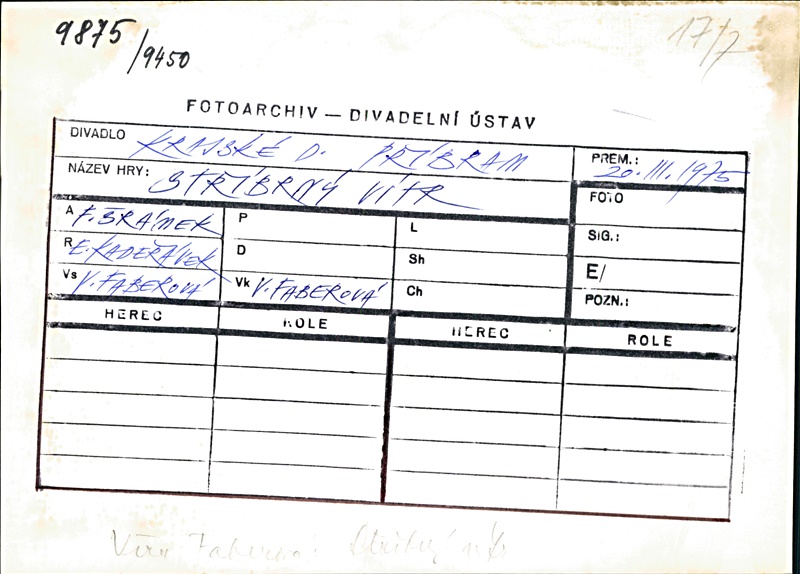 9875
/9450
17/7
FOTOARCHIV — DIVADELNÍ ÚSTAV
DIVADLO KRAJSKÉ D. PŘÍBRAM
PREM.: 20. III. 1975
NÁZEV HRY: STŘÍBRNÝ VÍTR
FOTO
A F. ŠRÁMEK P L
SIG.:
R E. KADEŘÁVEK D Sh
E/
Vs V. FABEROVÁ Vk V. FABEROVÁ Ch
POZN.:
HEREC ROLE HEREC ROLE
Věra Faberová: Stříbrný vítr